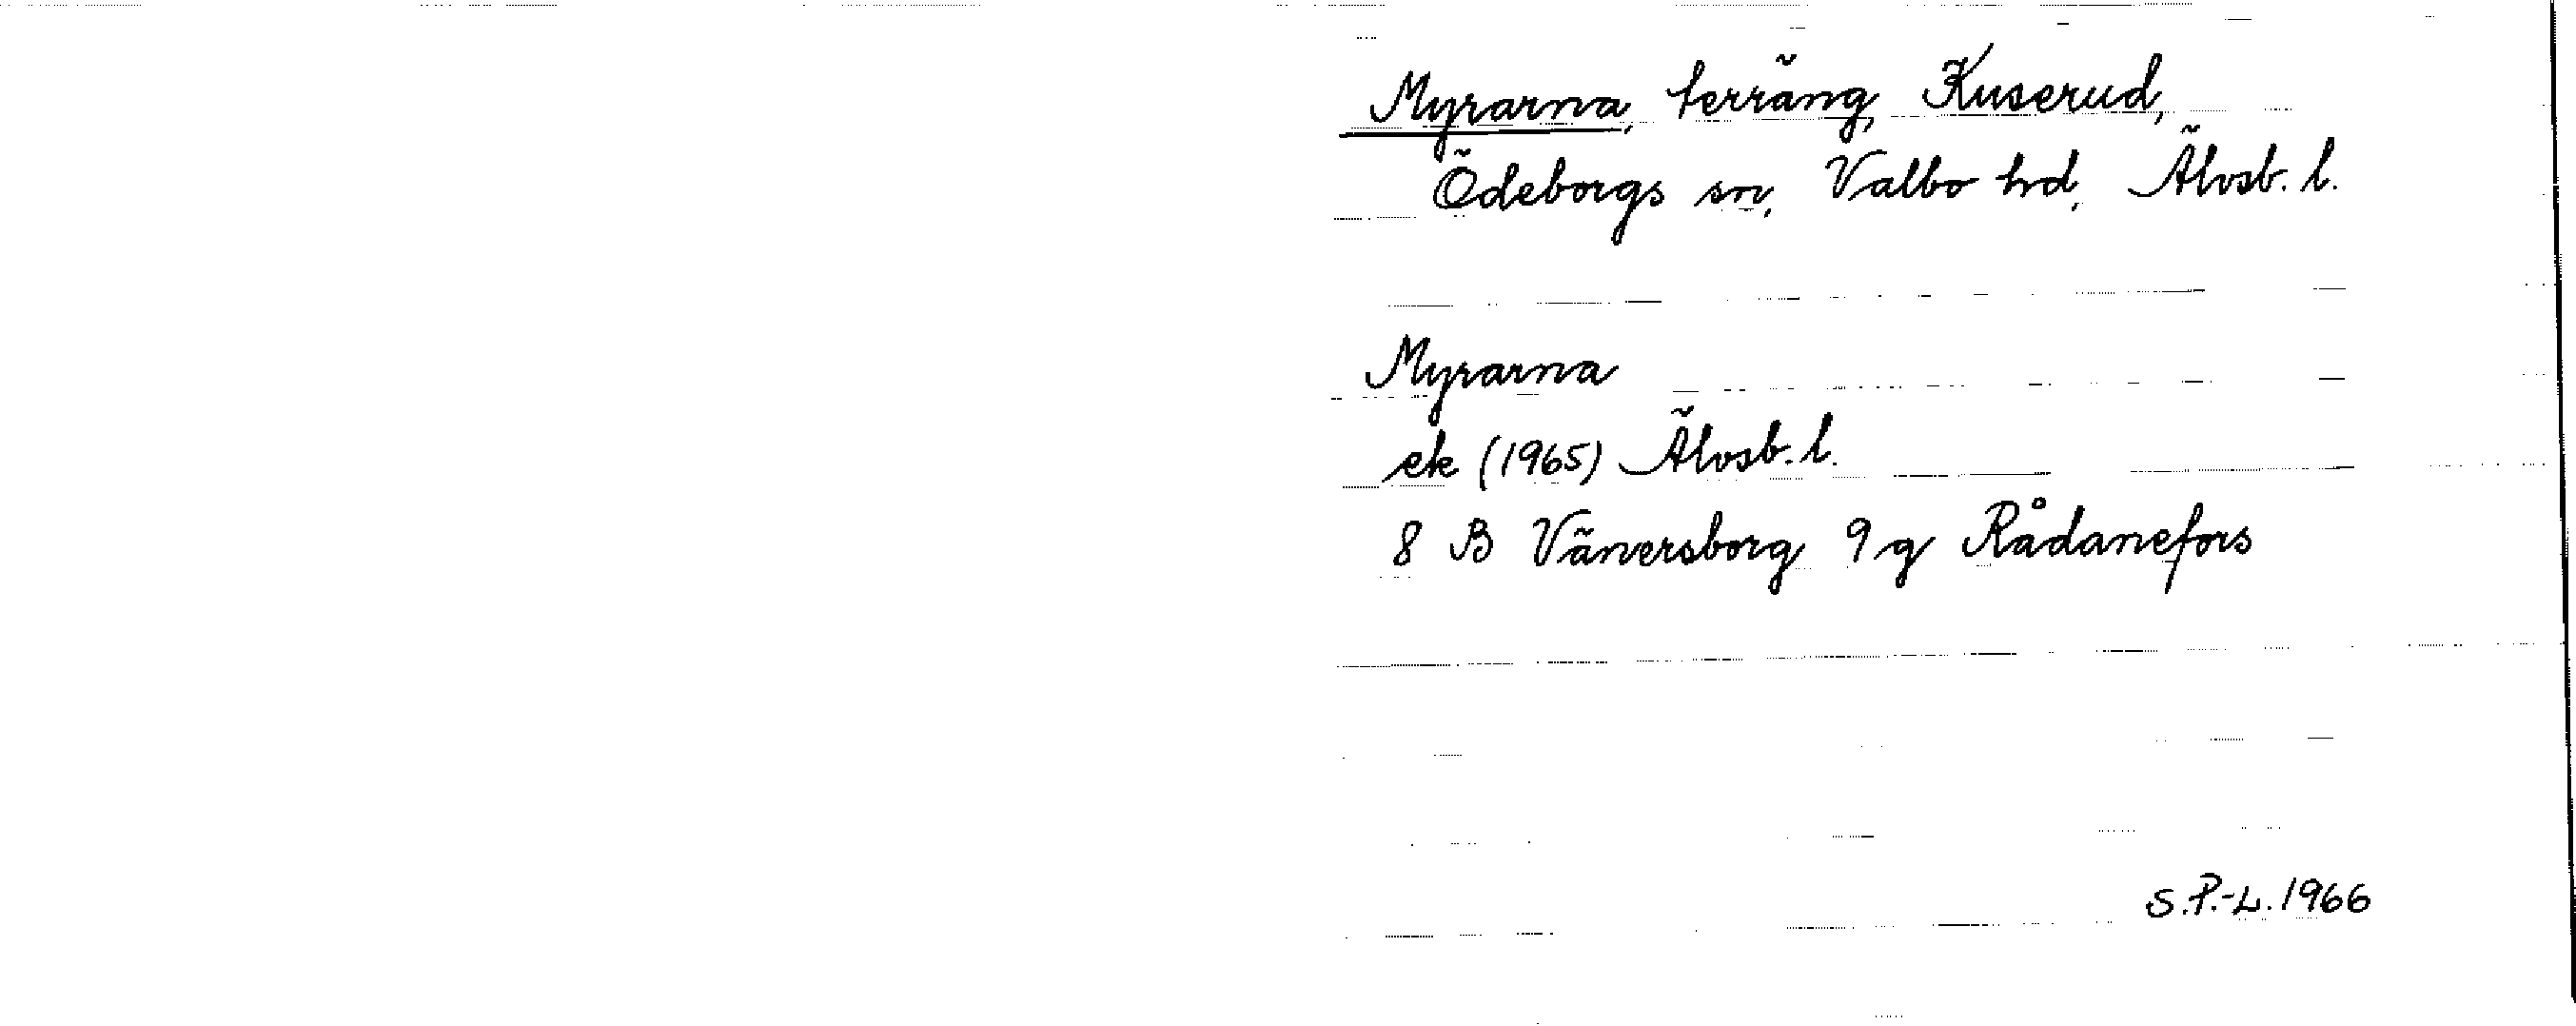 Myrarna, terräng, Kuserud,
Ödeborgs sn, Valbo hd, Älvsb. l.
Myrarna
ek (1965) Älvsb. l.
8 B Vänersborg 9 g Rådanefors
S.P.-L. 1966